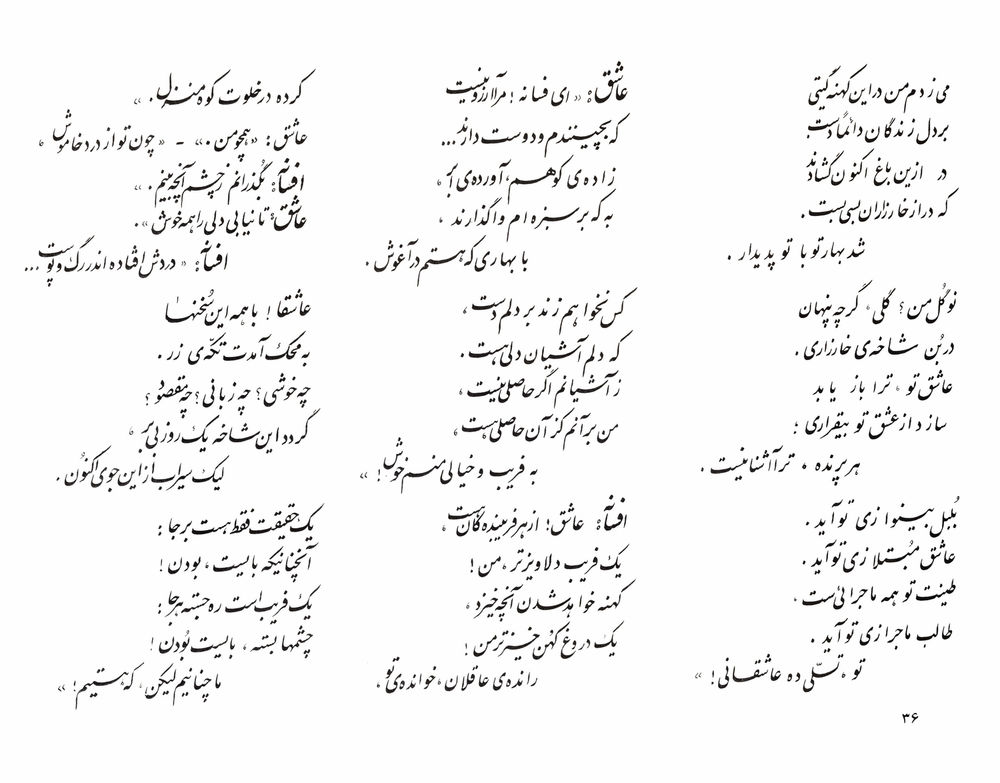 می زدم من در این کهنه گیتی
بر دل زندگان دائماً دست
در ازین باغ اکنون گشادند
که در از خارزاران بسی بست.
شد بهار تو با تو پدیدار.
نوگل من؟ گلی، گرچه پنهان
در بُن شاخه‌ی خارزاری.
عاشق تو، ترا باز یابد
سازد از عشق تو بیقراری؛
هر پرنده، ترا آشنا نیست.
بُلبل بینوا زی تو آید.
عاشق مُبتلا زی تو آید.
طینت تو همه ماجرائی‌ست،
طالب ماجرا زی تو آید.
تو، تسلّی ده عاشقانی! »
عاشق: « ای فسانه! مرا آرزو نیست
که بچینندم و دوست دارند...
زاده‌ی کوهم، آورده‌ی ابر،
به که بر سبزه‌ام واگذارند،
با بهاری که هستم در آغوش.
کس نخواهم زند بر دلم دست،
که دلم آشیان دلی هست.
ز آشیانم اگر حاصلی نیست،
من بر آنم کز آن حاصلی هست،
به فریب و خیالی منم خوش! »
افسانه: عاشق! از هر فریبنده کان هست،
یک فریب دلاویزتر، من!
کهنه خواهد شدن آنچه خیزد،
یک دروغ کهن خیزتر من!
رانده‌ی عاقلان، خوانده‌ی تو،
کرده در خلوت کوه منزل. »
عاشق: « همچو من.» - « چون تو از درد خاموش،
افسانه: بگذرانم ز چشم آنچه بینم. »
عاشق: تا نیابی دلی را همه خوش ».
افسانه: « دردش افتاده اندر رگ و پوست...
عاشقا! با همه این سُخنها
به محک آمدت تکّه‌ی زر.
چه خوشی؟ چه زیانی؟ چه مقصود؟
گردد این شاخه یک روز بی بر،
لیک سیراب از این جوی اکنون.
یک حقیقت فقط هست بر جا:
آنچنانیکه بایست، بودن!
یک فریب است ره جسته هر جا:
چشمها بسته، بایست بُودن!
ما چنانیم لیکن، که هستیم! »
۳۶